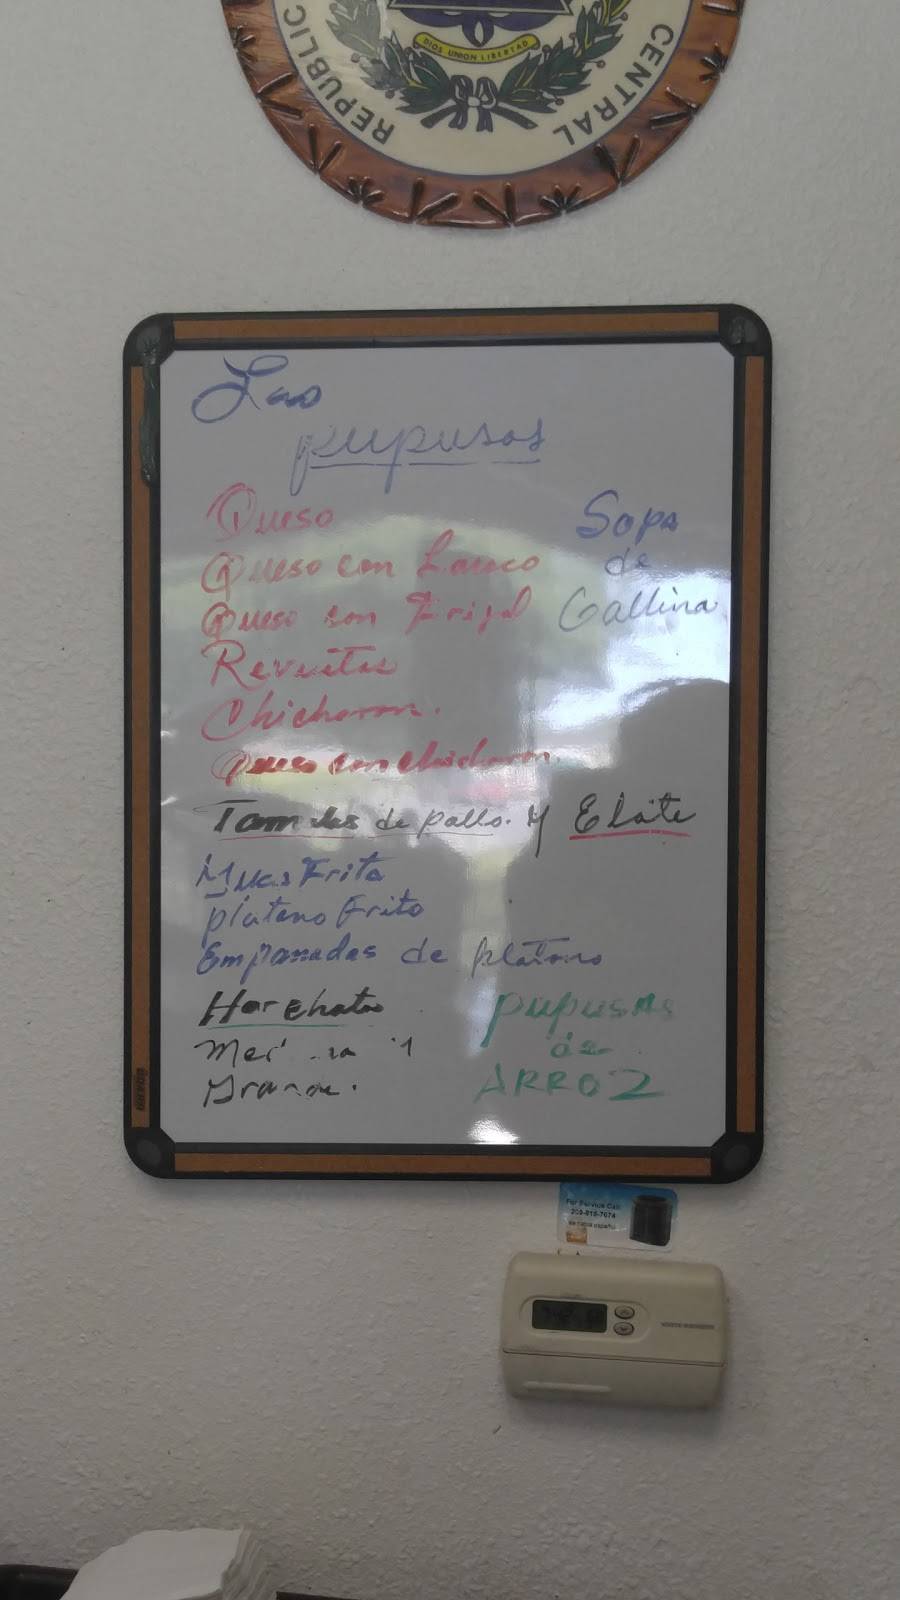 REPUBLIC
CENTRAL
DIOS UNION LIBERTAD
Las
pupusas
Queso
Queso con Loroco
Queso con Frijol
Revueltas
Chicharron.
Queso con chicharron.
Sopa
de
Gallina
Tamales de pollo. y Elote
Yuca Frita
platano Frito
Empanadas de platano
Horchata
Grande.
pupusas
de
ARROZ
For Service Call
se habla español